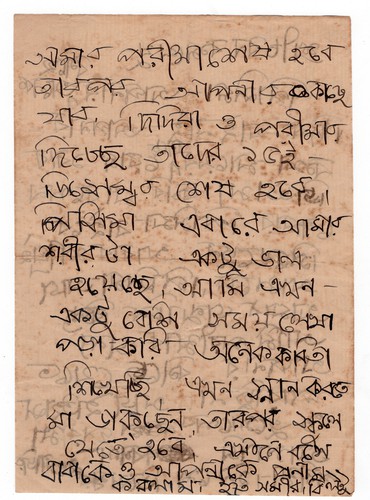 আমার পরীক্ষা শেষ হবে
তারপর আপনার কাছে
যাব, দিদিরা ও পরীক্ষার
দিতেছে তাদের ১৫ই
ডিসেম্বর শেষ হবে,,
পিসিমা এবারে আমার
শরীরটা একটু ভাল
হয়েছে, আমি এখন
একটু বেশি সময় লেখা
পড়া করি অনেক কবিতা
শিখেছি এখন স্নান করতে
মা ডাকছেন, তারপর স্কুলে
যেতে হবে এখানে বসে
বাবাকে ও আপনাকে প্রনাম
করলাম। ইতি সমীর